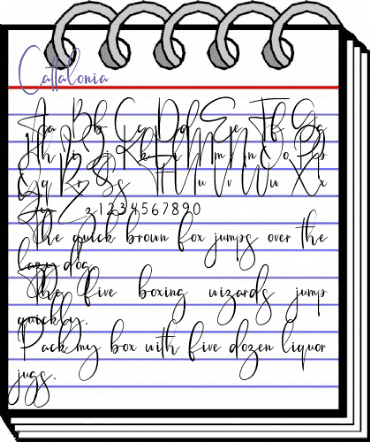 Cattalonia
Aa Bb Cc Dd Ee Ff Gg
Hh Ii Jj Kk Ll Mm Nn Oo Pp
Qq Rr Ss Tt Uu Vv Ww Xx
Yy Zz 1234567890
The quick brown fox jumps over the
lazy dog.
The five boxing wizards jump
quickly.
Pack my box with five dozen liquor
jugs.